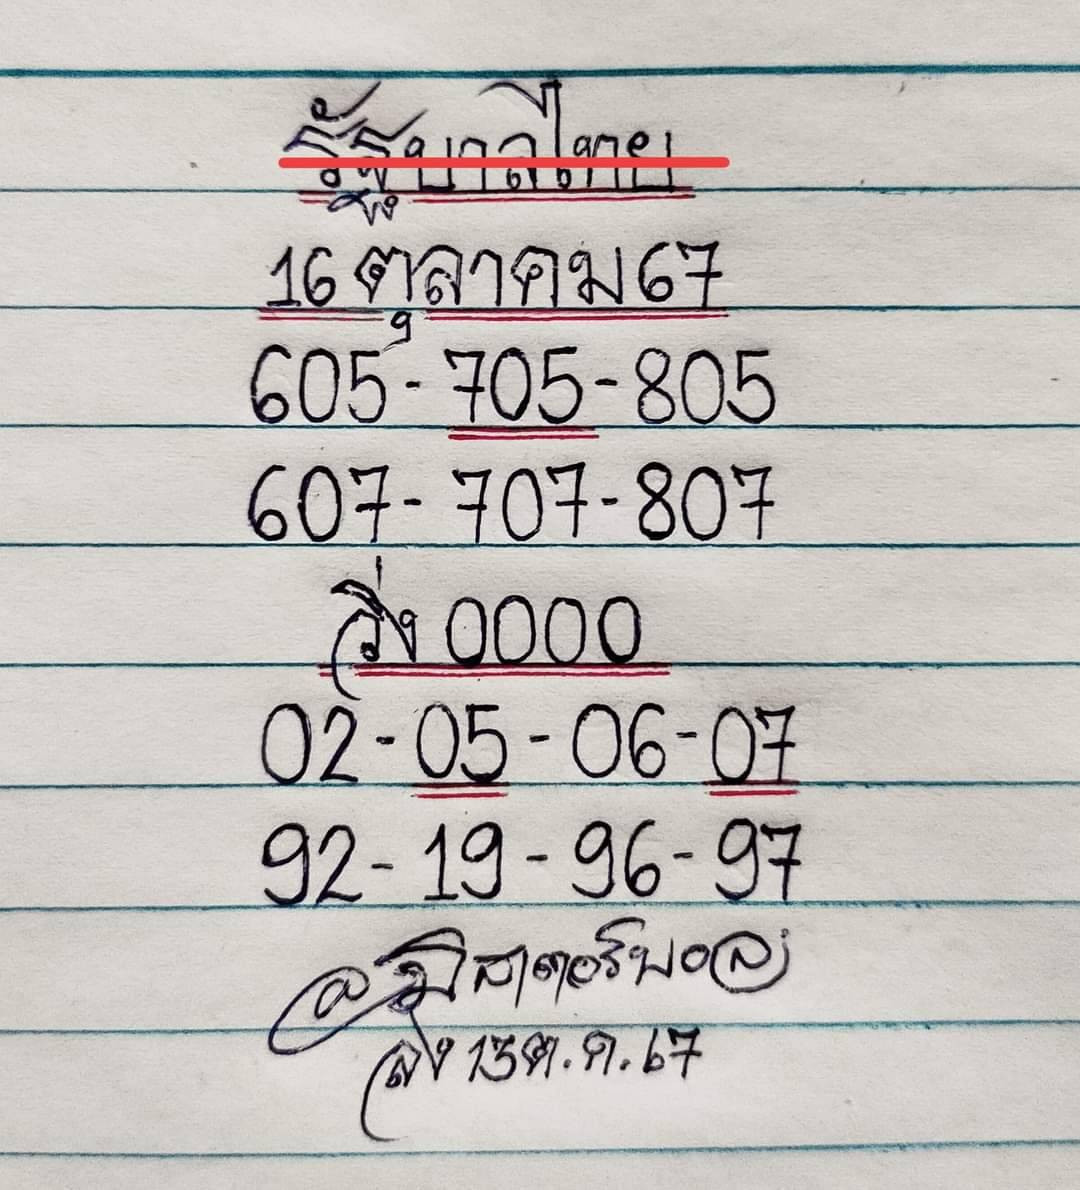 รัฐบาลไทย
16 ตุลาคม 67
605 - 705 - 805
607 - 707 - 807
วิ่ง 0000
02 - 05 - 06 - 07
92 - 19 - 96 - 97
อ.มิสเตอร์บอล
ลง 13 ต.ค. 67